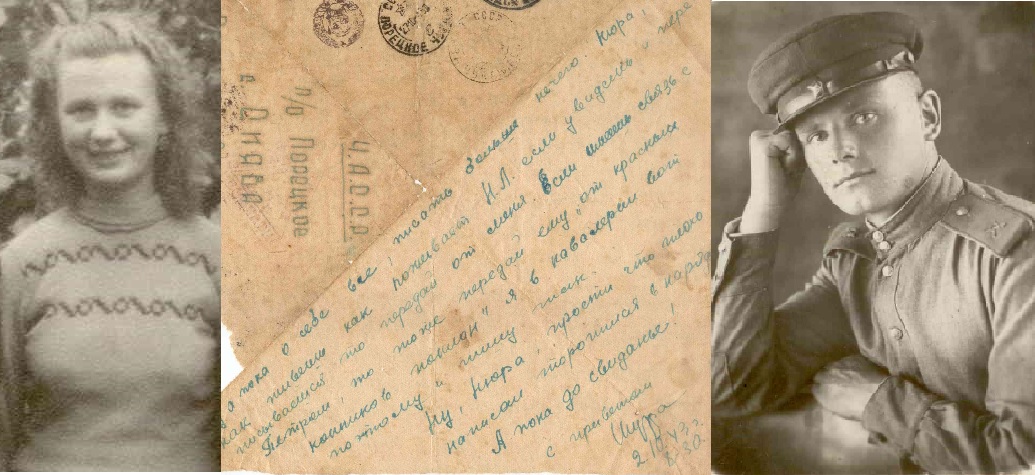 ПОРЕЦКОЕ
СССР
Ч.А.С.С.Р.
п/о Порецкое
а пока о себе все, писать больше нечего Нюра,
как живешь как поживает Н.Л. если увидешь и пере
писываешся то передай от меня. Если имеешь связь с
Петром, то тоже передай ему „от красных
конников поклон" я в кавалерии вот
поэтому и пишу так.
Ну, Нюра, прости что плохо
написал торопился в наряд
А пока до свиданье!
с приветом
Шура
43 г.